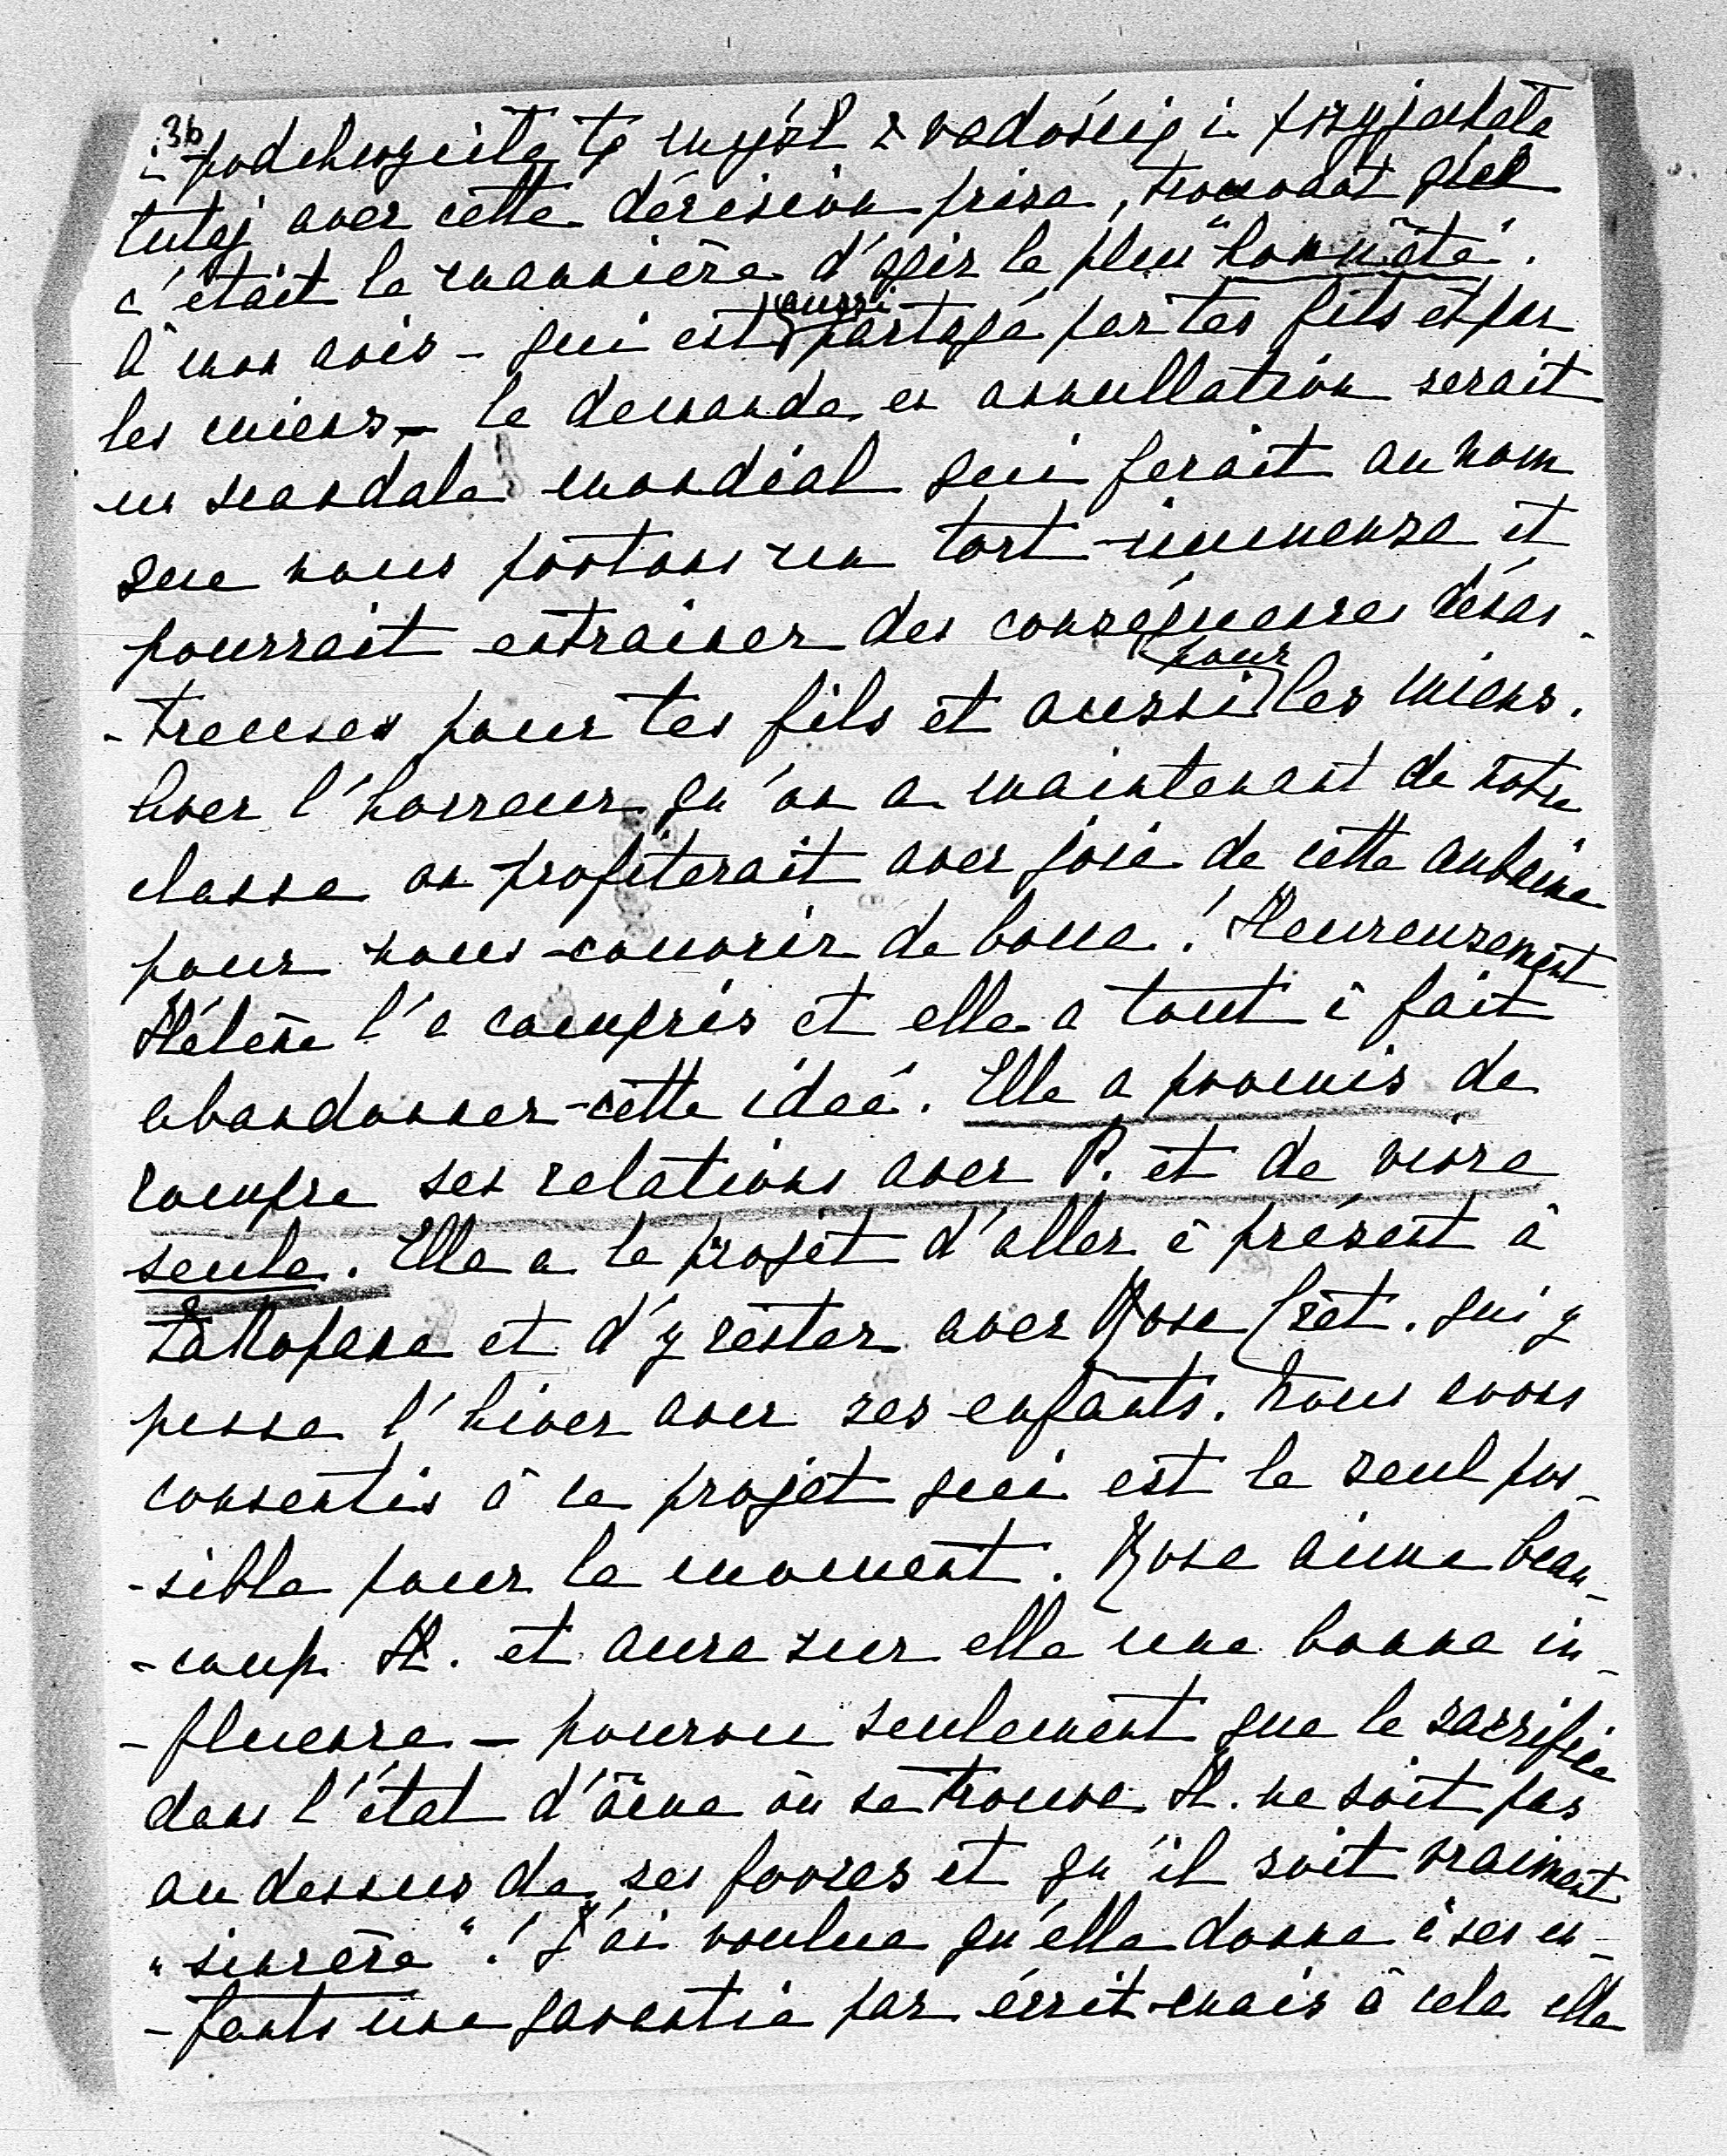 3b
- podchwyciła tę myśl z radością i przyjechała
tutaj avec cette décision prise, trouvant que
c'était la mannière d'agir la plus "honnête".
À mon avis - qui est aussi partagé par tes fils et par
les miens, - la demande en annullation serait
un scandale mondial qui ferait au nom
que nous portons un tort immense et
pourrait entrainer des conséquences désas-
-treuses pour tes fils et aussi pour les miens.
Avec l'horreur qu'on a maintenant de notre
classe on profiterait avec joie de cette aubaine
pour nous couvrir de boue! Heureusement
Hélène l'a compris et elle a tout à fait
abandonner cette idée. Elle a promis de
rompre ses relations avec P. et de vivre
seule. Elle a le projet d'aller à présent à
Zakopane et d'y rester avec Rose Czet. qui y
passe l'hiver avec ses enfants. Nous avons
consentis à ce projet qui est le seul pos-
-sible pour le moment. Rose aime beau-
-coup H. et aura sur elle une bonne in-
-fluence - pourvu seulement que le sacrifice
dans l'état d'âme où se trouve H. ne soit pas
au dessus de ses forces et qu'il soit vraiment
"sincère"! J'ai voulue qu'elle donne à ses en-
-fants une garantie par écrit mais à cela elle